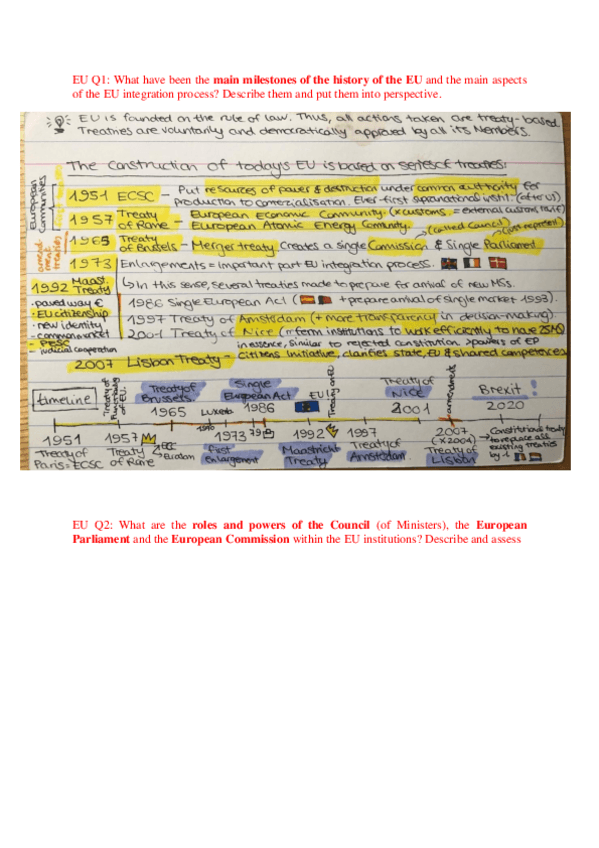 EU Q1: What have been the main milestones of the history of the EU and the main aspects
of the EU integration process? Describe them and put them into perspective.
EU is founded on the rule of law. Thus, all actions taken are treaty-based
Treaties are voluntarily and democratically approved by all its Members.
The construction of today's EU is based on series of treaties:
European Communities
1951 ECSC - Put resources of power & destruction under common authority for
production to comercialisation. Ever-first supranational instit. (after WI)
1957 Treaty of Rome - European Economic Community (x customs, = external custom tariff)
European Atomic Energy Community
1965 Treaty of Brussels - Merger treaty Creates a single Comission & Single Parliament
1973 Enlargements = important part EU integration process.
1992 Maast. Treaty
In this sense, several treaties made to prepare for arrival of new MSs.
· paved way €
· EU citizenship
· new identity
- common market
- judicial cooperation
1986 Single European Act ( + prepare arrival of single market 1993).
1997 Treaty of Amsterdam (+ more transparency in decision-making)
2001 Treaty of Nice ( institutions to work efficiently to have 25MS)
in essence, similar to rejected constitution. powers of EP
2007 Lisbon Treaty = citizens initiative, clarifies state, EU & shared competences
timeline
Treaty of Brussels
1965
Single European Act
1986
EU!
Treaty on EU
Treaty of Nice
2001
amendment
Brexit !
2020
1951
Treaty of Paris = ECSC
1957
Treaty of Rome
EEC
Euratom
1973
First enlargement
1992
Maastricht Treaty
1997
Treaty of Amsterdam
2007
(x2004)
Treaty of Lisbon
Constitutional treaty
to replace all
existing treaties
by 1
EU Q2: What are the roles and powers of the Council (of Ministers), the European
Parliament and the European Commission within the EU institutions? Describe and assess